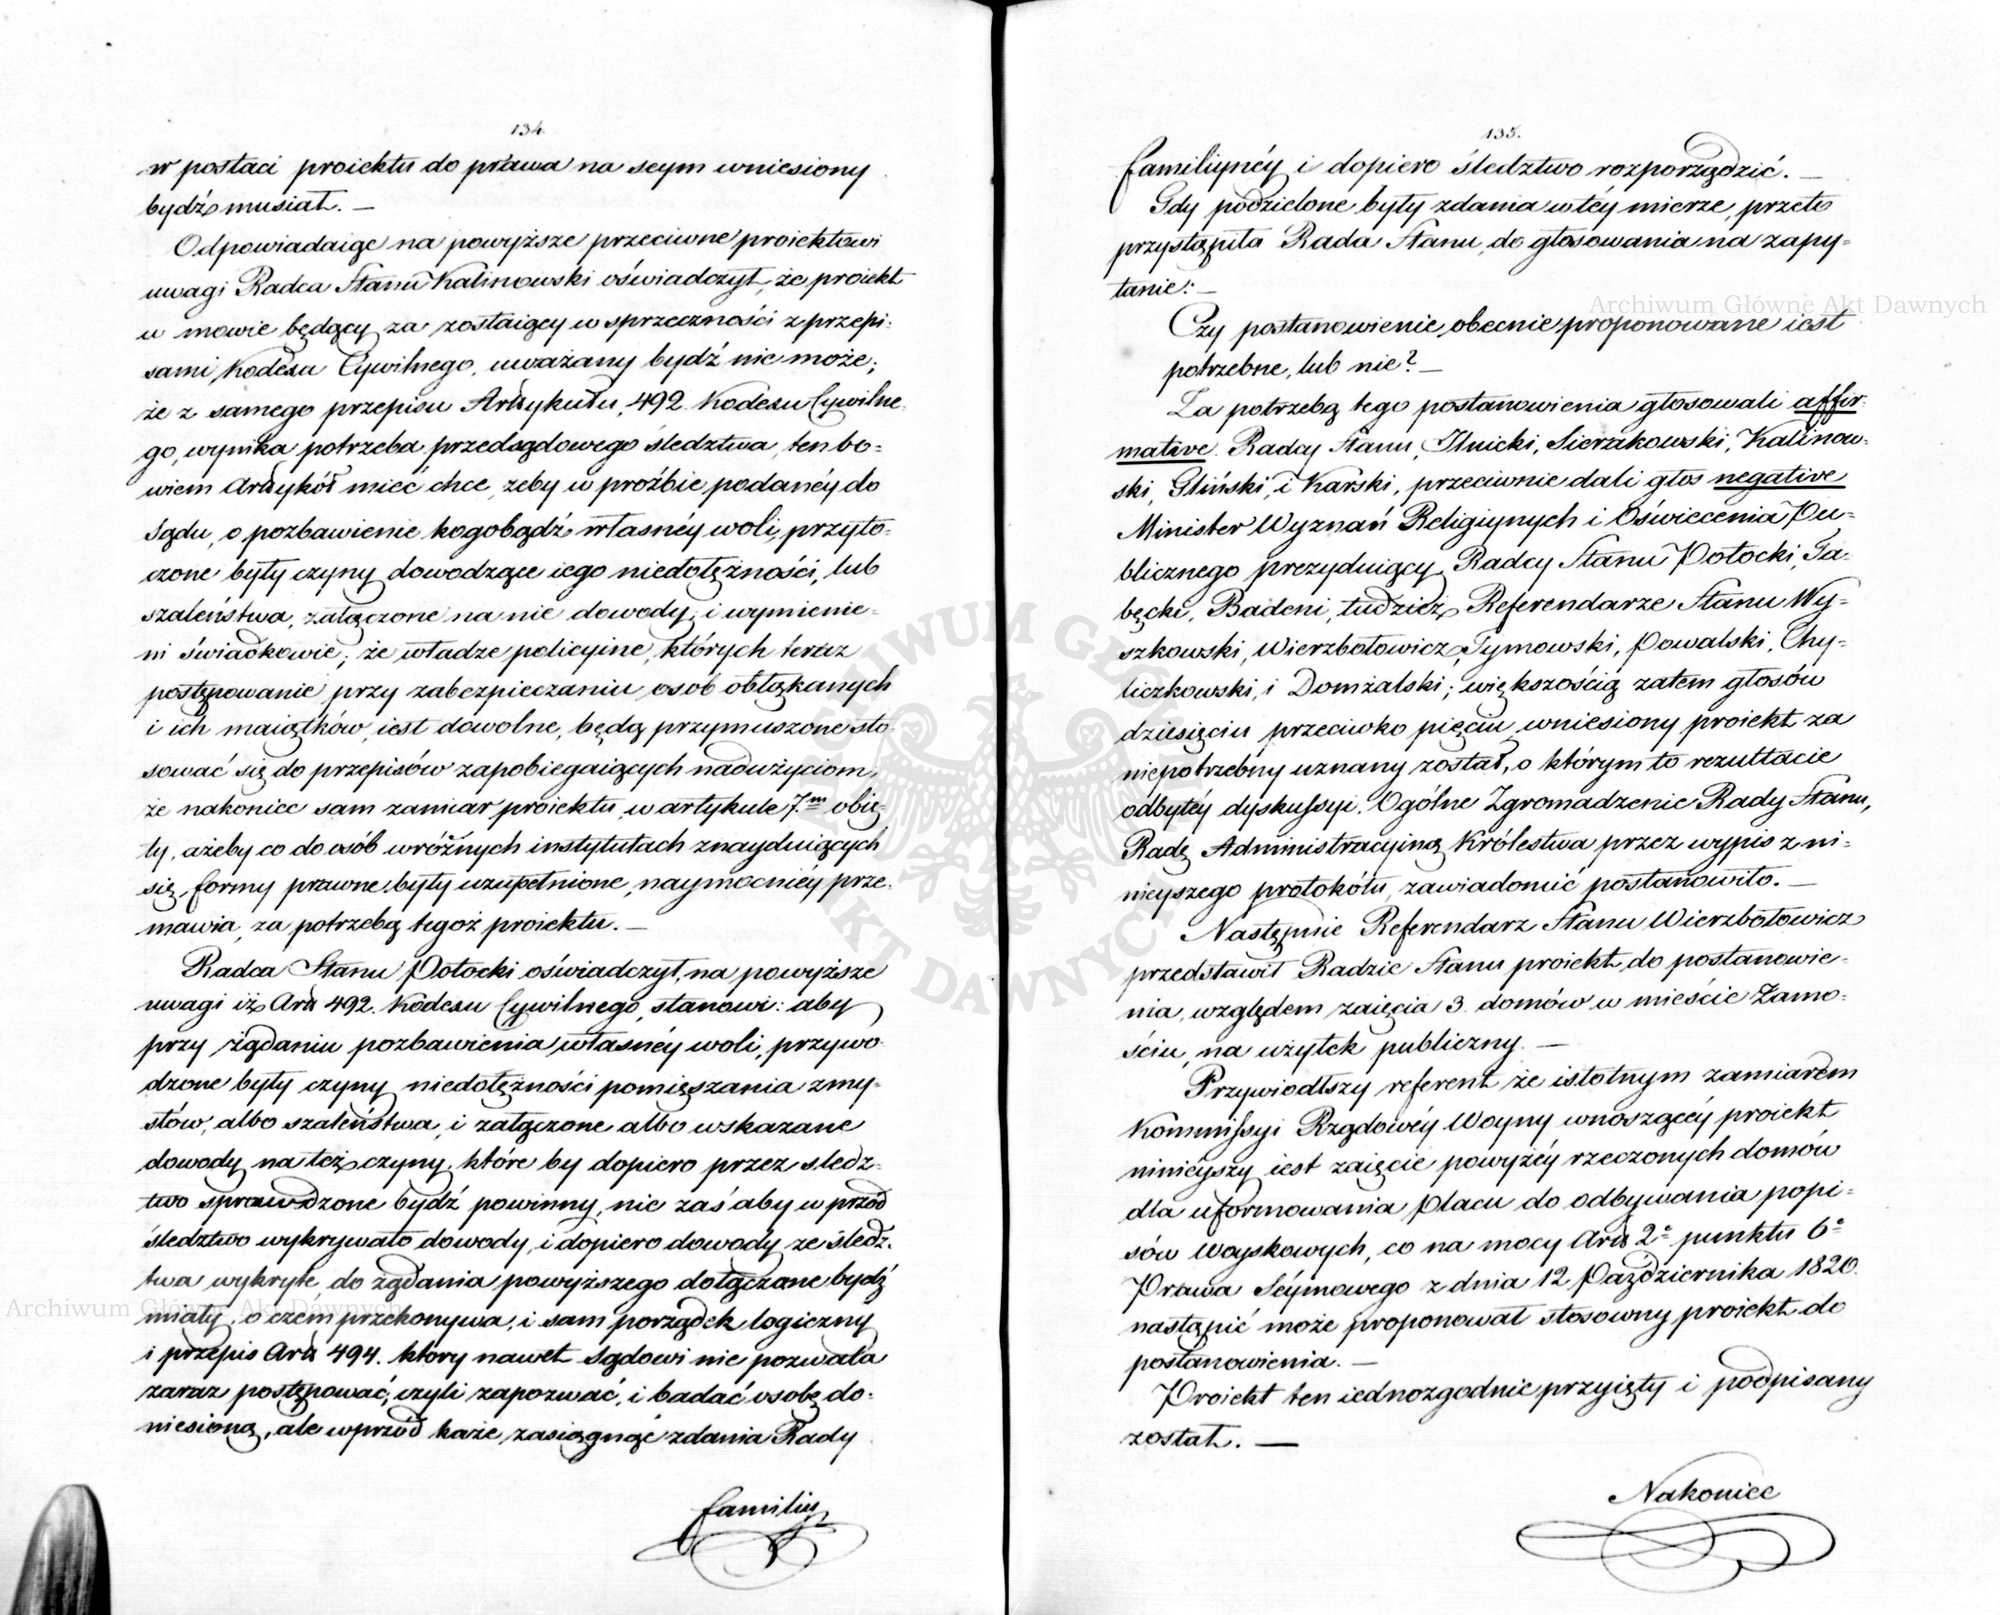 134.
w postaci proiektu do prawa na seym wniesiony
bydź musiał. —
Odpowiadaiąc na powyższe przeciwne proiektowi
uwagi Radca Stanu Kalinowski oświadczył, że proiekt
w mowie będący za zostaiący w sprzeczności z przepi-
sami Kodexu Cywilnego, uważany bydź nie może;
że z samego przepisu Artykułu 492. Kodexu Cywilne
go, wynika potrzeba przedsądowego śledztwa, ten bo-
wiem Artykół mieć chce, żeby w proźbie podanéy do
Sądu, o pozbawienie kogobądź własnéy woli, przyto-
czone były czyny dowodzące iego niedołężności, lub
szaleństwa, załączone na nie dowody, i wymienie-
ni świadkowie; że władze policyine, których teraz
postępowanie przy zabezpieczaniu osób obłąkanych
i ich maiątków, iest dowolne, będą przymuszone sto-
sować się do przepisów zapobiegaiących nadużyciom,
że nakoniec sam zamiar proiektu w artykule 7.m obię-
ty, ażeby co do osób w różnych instytutach znayduiących
się, formy prawne były uzupełnione, naymocniéy prze-
mawia, za potrzebą tegoż proiektu. —
Radca Stanu Potocki oświadczył, na powyższe
uwagi iż Art 492. Kodexu Cywilnego, stanowi: aby
przy żądaniu pozbawienia własnéy woli, przywo-
dzone były czyny niedołężności pomięszania zmy-
słów, albo szaleństwa, i załączone albo wskazane
dowody na też czyny, które by dopiero przez śledz-
two sprawdzone bydź powinny, nie zaś aby w przód
śledztwo wykrywało dowody, i dopiero dowody ze śledz-
twa wykryte, do żądania powyższego dołączane bydź
miały, o czem przekonywa, i sam porządek logiczny
i przepis Art 494. który nawet Sądowi nie pozwala
zaraz postępować, czyli zapozwać, i badać osobę do-
niesioną, ale wprzód każe zasiągnąć zdania Rady
familiy
135.
familiynéy i dopiero śledztwo rozporządzić. —
Gdy podzielone były zdania w téy mierze, przeto
przystąpiła Rada Stanu, do głosowania na zapy-
tanie: —
Czy postanowienie obecnie proponowane iest
potrzebne, lub nie? —
Za potrzebą tego postanowienia głosowali affir-
mative Radcy Stanu, Ilnicki, Sierakowski, Kalinow-
ski, Gliński, i Karski, przeciwnie dali głos negative
Minister Wyznań Religiynych i Oświecenia Pu-
blicznego prezyduiący, Radcy Stanu Potocki, Ga-
bęcki, Badeni, tudzież Referendarze Stanu Wy-
szkowski, Wierzbołowicz, Tymowski, Powalski, Chy-
liczkowski, i Domżalski; większością zatem głosów
dziesięciu przeciwko pięciu wniesiony proiekt za
niepotrzebny uznany został, o którym to rezultacie
odbytéy dyskussyi. Ogólne Zgromadzenie Rady Stanu,
Radę Administracyiną Królestwa przez wypis z ni-
nieyszego protokółu, zawiadomić postanowiło. —
Następnie Referendarz Stanu Wierzbołowicz
przedstawił Radzie Stanu proiekt do postanowie-
nia, względem zaięcia 3. domów w mieście Zamo-
ściu, na użytek publiczny. —
Przywiodłszy referent że istotnym zamiarem
Kommissyi Rządowéy Woyny wnoszącéy proiekt
ninieyszy iest zaięcie powyżéy rzeczonych domów
dla uformowania Placu do odbywania popi-
sów Woyskowych, co na mocy Art 2o punktu 6o
Prawa Séymowego z dnia 12 Października 1820.
nastąpić może proponował stosowny proiekt do
postanowienia. —
Proiekt ten iednozgodnie przyięty i podpisany
został. —
Nakoniec
Archiwum Główne Akt Dawnych
Archiwum Główne Akt Dawnych
ARCHIWUM GŁÓWNE AKT DAWNYCH